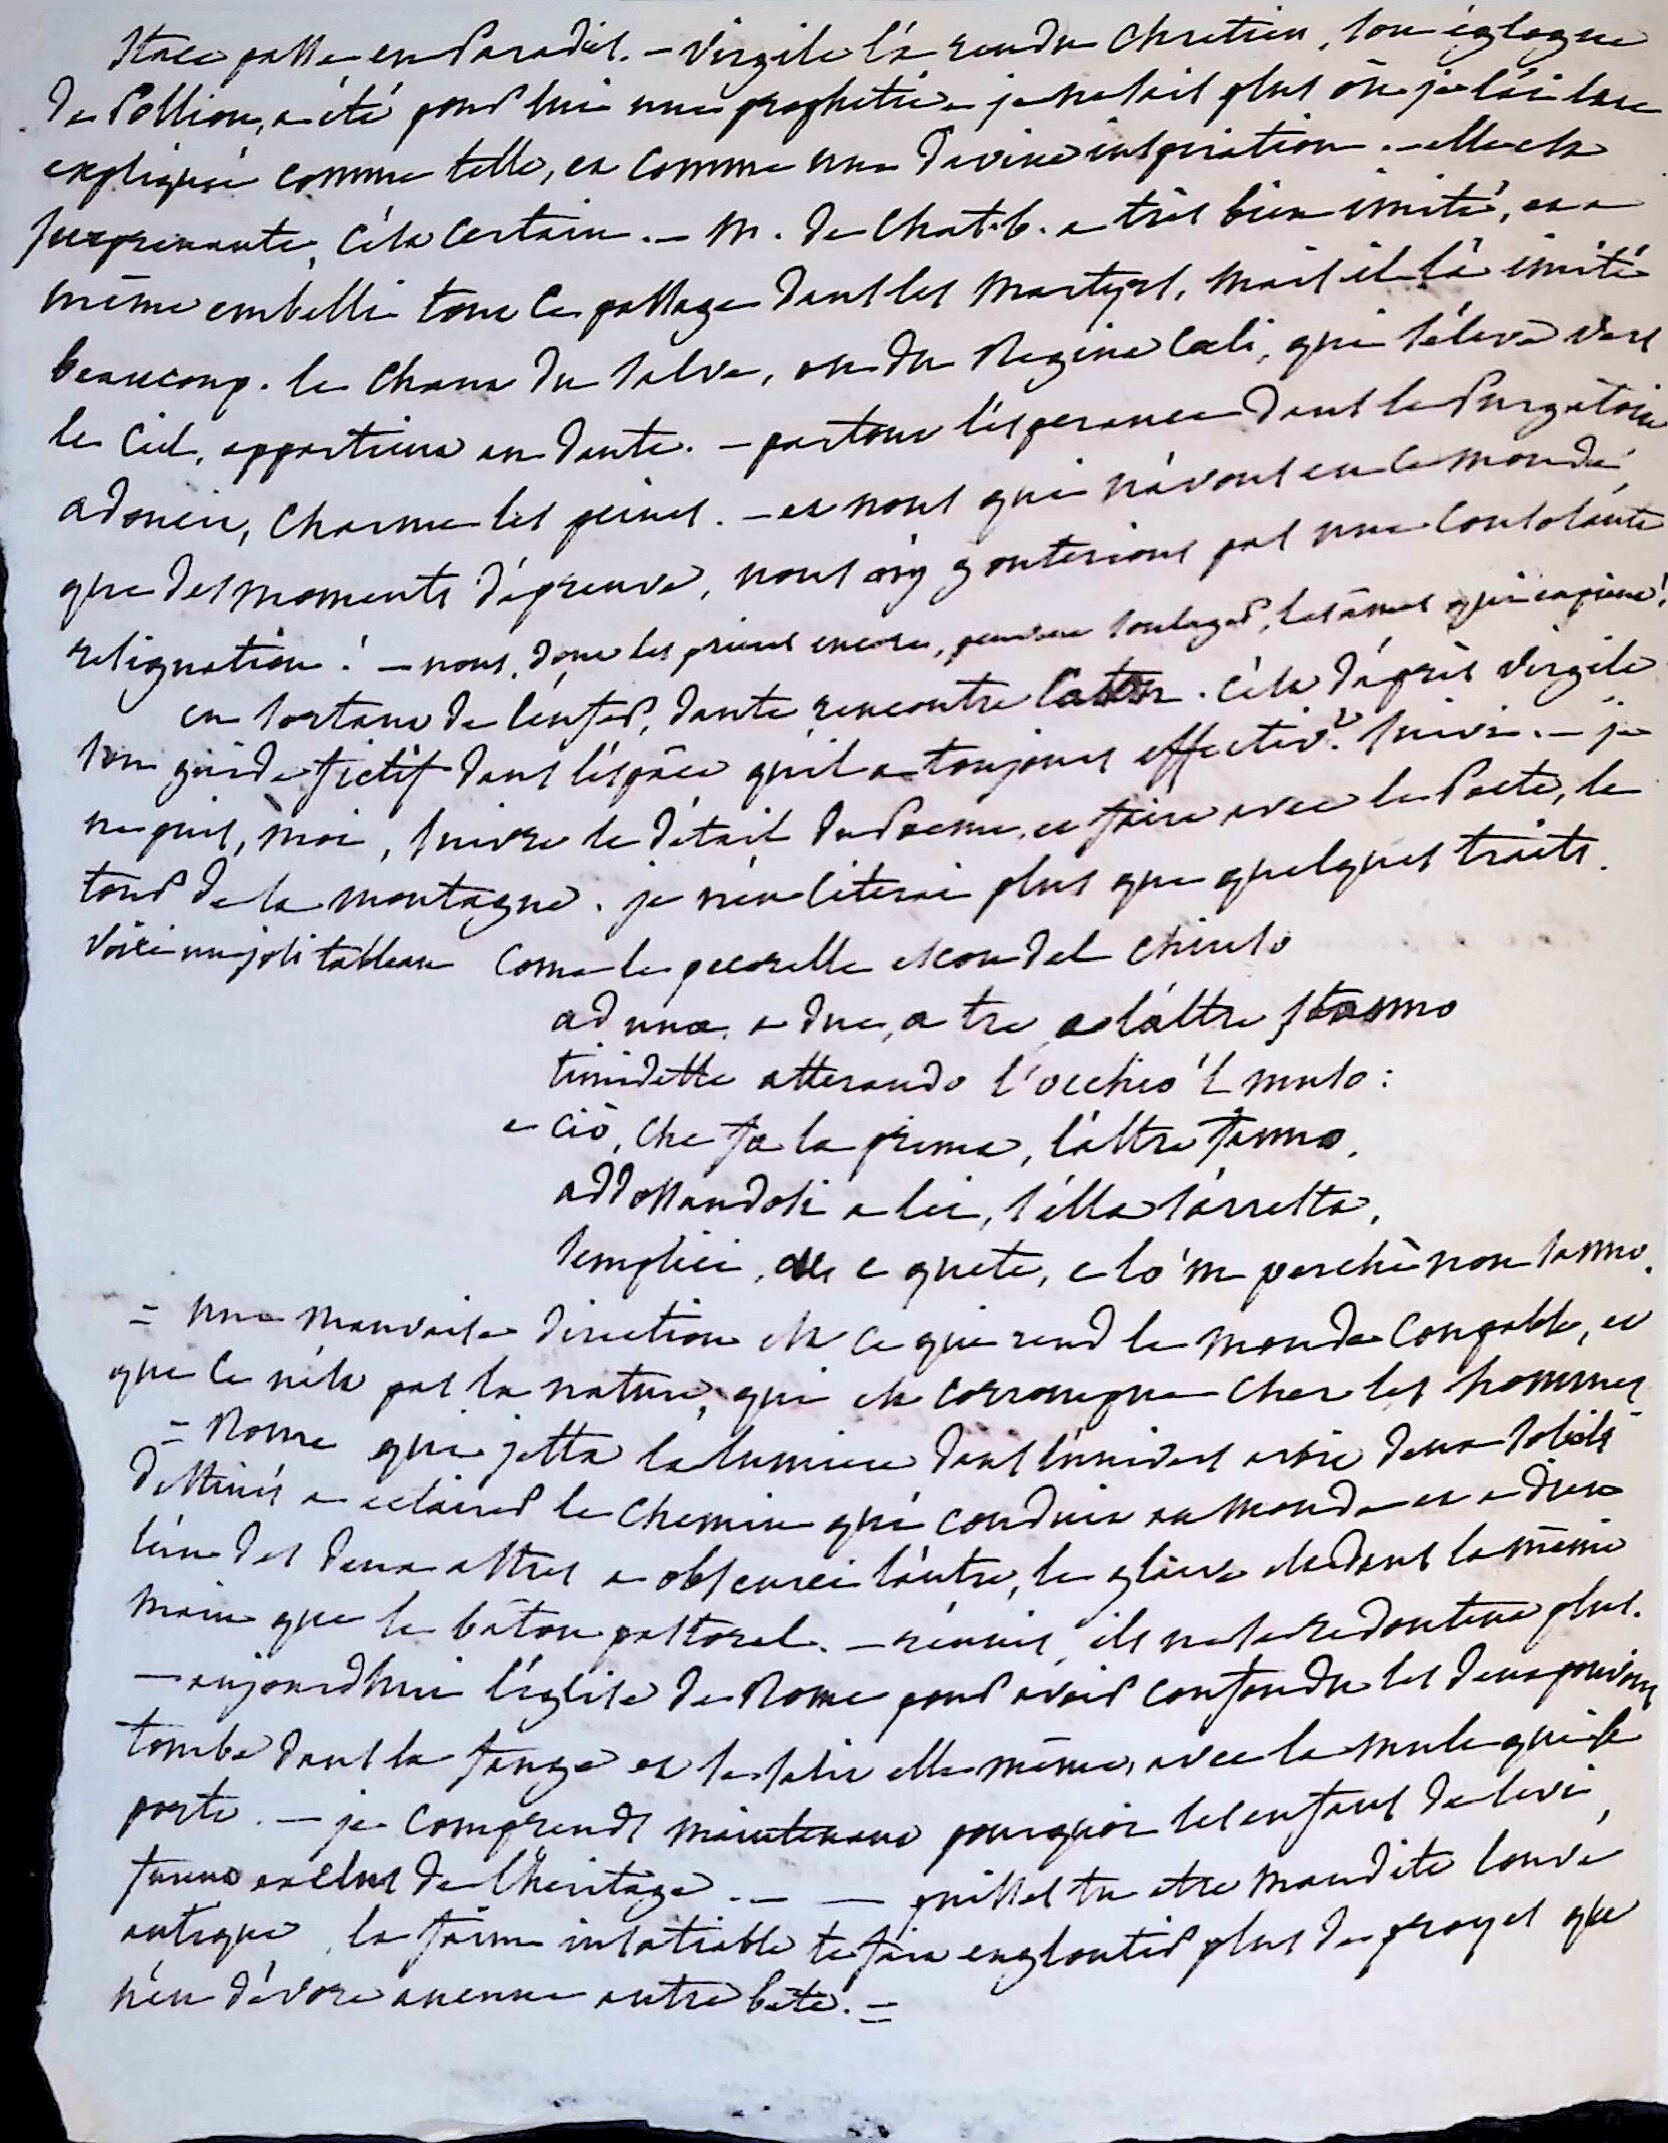 Stace passe en Paradis. – Virgile l'a rendu chretien, son églogue
de Pollion, a été pour lui une prophetie – je ne sais plus où je l'ai lue
expliquée comme telle, et comme une divine inspiration. – elle est
surprenante, c'est certain. – M. de Chat.b. a très bien imité, et a
même embelli tout ce passage dans les Martyrs, mais il l'a imité
beaucoup. le chant du Salve, ou du Regina Cœli, qui s'éleve vers
le Ciel, appartient au Dante. – partout l'esperance dans le Purgatoire
adoucit, charme les peines. – et nous qui n'avons en ce monde,
que des moments d'épreuve, nous n'y gouterions pas une consolante
resignation! – nous, dont les prieres encore, peuvent soulager, les ames qui expient!
en sortant de l'enfer, Dante rencontre Caton. c'est d'après Virgile
son guide fictif dans l'espace qu'il a toujours effectivt suivi. – je
ne puis, moi, suivre le détail du Poeme, et faire avec le Poete, le
tour de la montagne. je n'en citerai plus que quelques traits.
Voici un joli tableau Come le pecorelle escon del chiuso
ad una, a due, a tre, e l'altre stanno
timidette atterrando l'occhio e'l muso:
e ciò, che fa la prima, l'altre fanno,
addossandosi a lei, s'ella s'arresta,
semplici, e quete, e lo'm perchè non sanno.
= une mauvaise direction est ce qui rend le monde coupable, et
que ce n'est pas la nature, qui est corrompue chez les hommes
= Rome qui jetta la lumiere dans l'univers avoit deux soleils
destinés a eclairer le chemin qui conduit au monde et a dieu
l'un des deux astres a obscurci l'autre, le glaive est dans la même
main que le bâton pastoral. – réunis, ils ne se redoutent plus.
– aujourdhui l'église de Rome pour avoir confondu les deux pouvoirs
tombe dans la fange et se salit elle même, avec la mule qui la
porte. – je comprends maintenant pourquoi les enfans de Levi,
furent exclus de l'heritage. – – puisses tu etre maudite louve
antique, ta faim insatiable te fait engloutir plus de proyes que
n'en dévore aucune autre bete. =